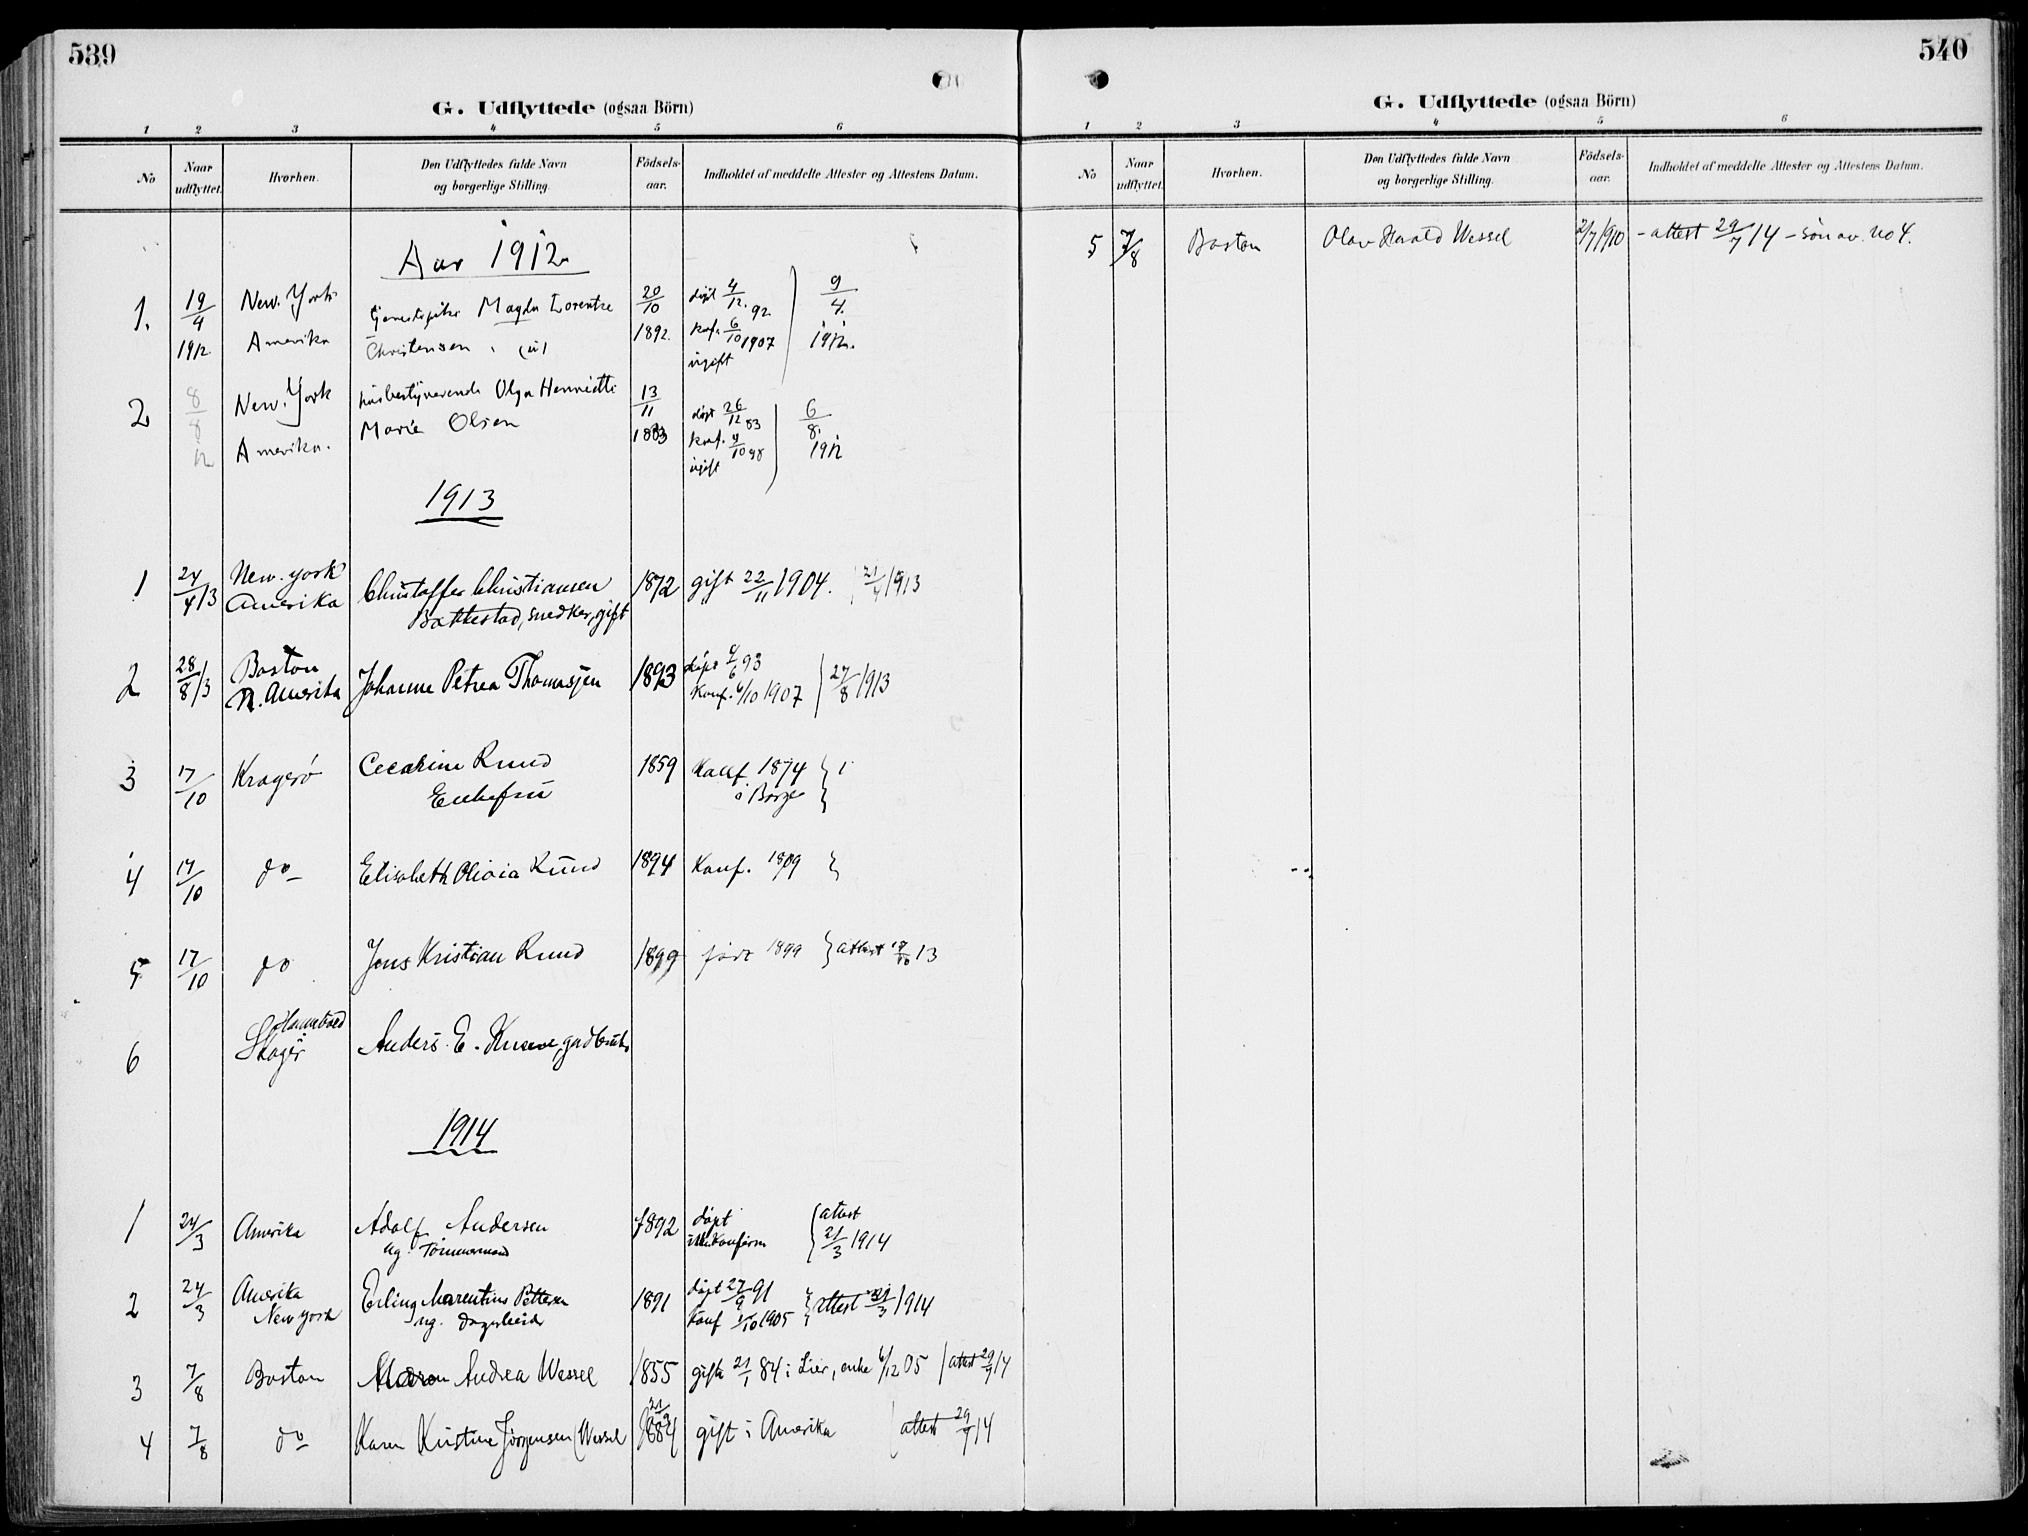 539
G. Udflyttede (ogsaa Börn)
1 2 3 4 5 6
No
Naar udflyttet.
Hvorhen.
Den Udflyttedes fulde Navn og borgerlige Stilling.
Födsels-aar.
Indholdet af meddelte Attester og Attestens Datum.
Aar 1912
1. 19/4 1912 New. York Amerika
Magda Lorentze
Christensen
20/10 1892.
døpt 4/12. 92
konf. 6/10 1907
ugift
9/4. 1912.
2 8/8 12 New. York Amerika.
husbestyrerende Olga Henriette
Marie Olsen
13/11 1883
døpt 26/12 83
konf. 9/10 98
ugift
6/8. 1912
1913
1 24/4 13 New. york Amerika
Christoffer Christiansen
Battestad, snedker, gift
1872 gift 22/11 1904. 1913
2 28/8 13 Boston N. Amerika
Johanne Petrea Thomasjen
1893
døpt 4/6 93
Konf. 6/10 1907
27/8 1913
3 17/10 Kragerø
Cecakine Ruud
Enkefru
1859 Konf. 1874
i Borge
4 17/10 do
Elisabeth Olivia Ruud
1894 Konf. 1909
5 17/10 do
Jens Kristian Ruud
1899 født 1899 attest 17/10 13
6 Skåger
Anders. E. gårdbruker
1914
1 24/3 Amerika
Adolf Andersen
ug. Tömmermand
1892 døpt
ikke konfirm
attest 21/3 1914
2 24/3 Amerika New york
Erling Marentius Pettersen
ug. Dagarbeider
1891 døpt 27/9 91
konf 1/10 1905
attest 21/3 1914
3 7/8 Boston
Maren Andrea Wessel
1855 gift 21/1 84 i Lier, enke 6/12 05 attest 29/7 14
4 7/8 do
Karen Kristine Jörgensen (Wessel
21/9 1884 gift i Amerika attest 29/7 14
540
G. Udflyttede (ogsaa Börn)
1 2 3 4 5 6
No
Naar udflyttet.
Hvorhen.
Den Udflyttedes fulde Navn og borgerlige Stilling.
Födsels-aar.
Indholdet af meddelte Attester og Attestens Datum.
5 7/8 Boston Olav Harald Wessel 2/7 1910 - attest 29/7 14 - sön av. no 4.